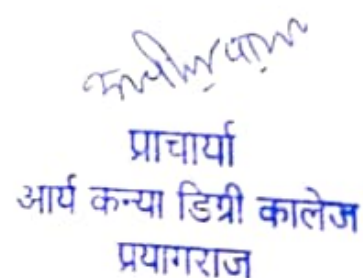 प्राचार्या
आर्य कन्या डिग्री कालेज
प्रयागराज